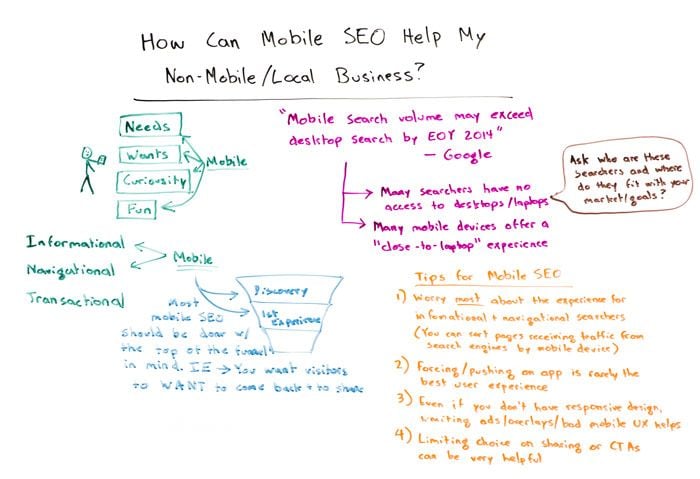 How Can Mobile SEO Help My
Non-Mobile/Local Business?
Needs
Wants
Curiousity
Fun
Mobile
"Mobile search volume may exceed
desktop search by EOY 2014"
— Google
Many searchers have no
access to desktops/laptops
Many mobile devices offer a
"close-to-laptop" experience
Ask who are these
searchers and where
do they fit with your
market/goals?
Informational
Navigational
Transactional
Mobile
Discovery
1st Experience
Most
mobile SEO
should be done w/
the top of the funnel
in mind. IE → You want visitors
to WANT to come back + to share
Tips for Mobile SEO
1) Worry most about the experience for
infomational + navigational searchers
(You can sort pages receiving traffic from
search engines by mobile device)
2) Forcing/pushing an app is rarely the
best user experience
3) Even if you don't have responsive design,
limiting ads/overlays/bad mobile UX helps
4) Limiting choice on sharing or CTAs
can be very helpful